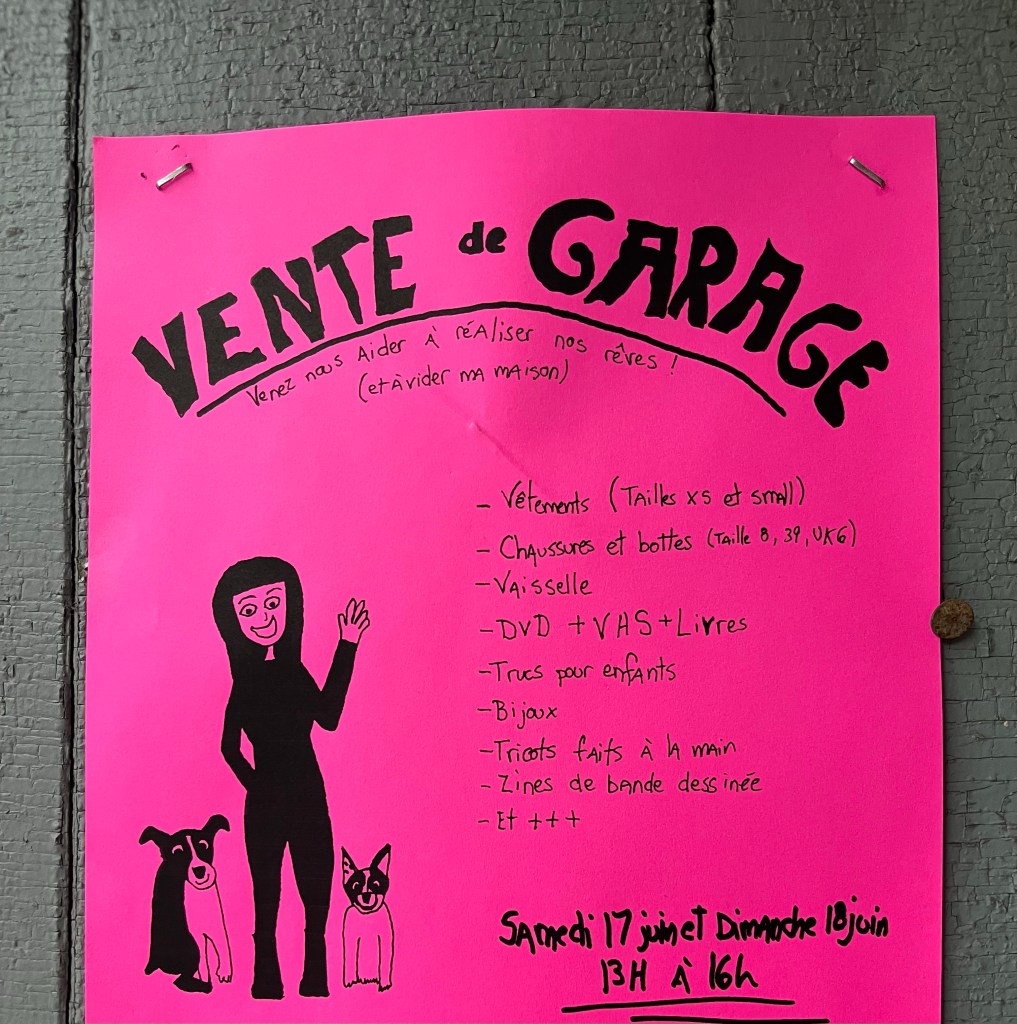 VENTE de GARAGE
Venez nous Aider À réAliser nos rêves !
(et À vider mA mAison)
- Vêtements (TAilles XS et smAll)
- ChAussures et bottes (TAille 8, 39, UK6)
- VAisselle
- DVD + VHS + Livres
- Trucs pour enfAnts
- Bijoux
- Tricots fAits À lA mAin
- Zines de bAnde dessinée
- Et +++
SAmedi 17 juin et DimAnche 18 juin
13H À 16h